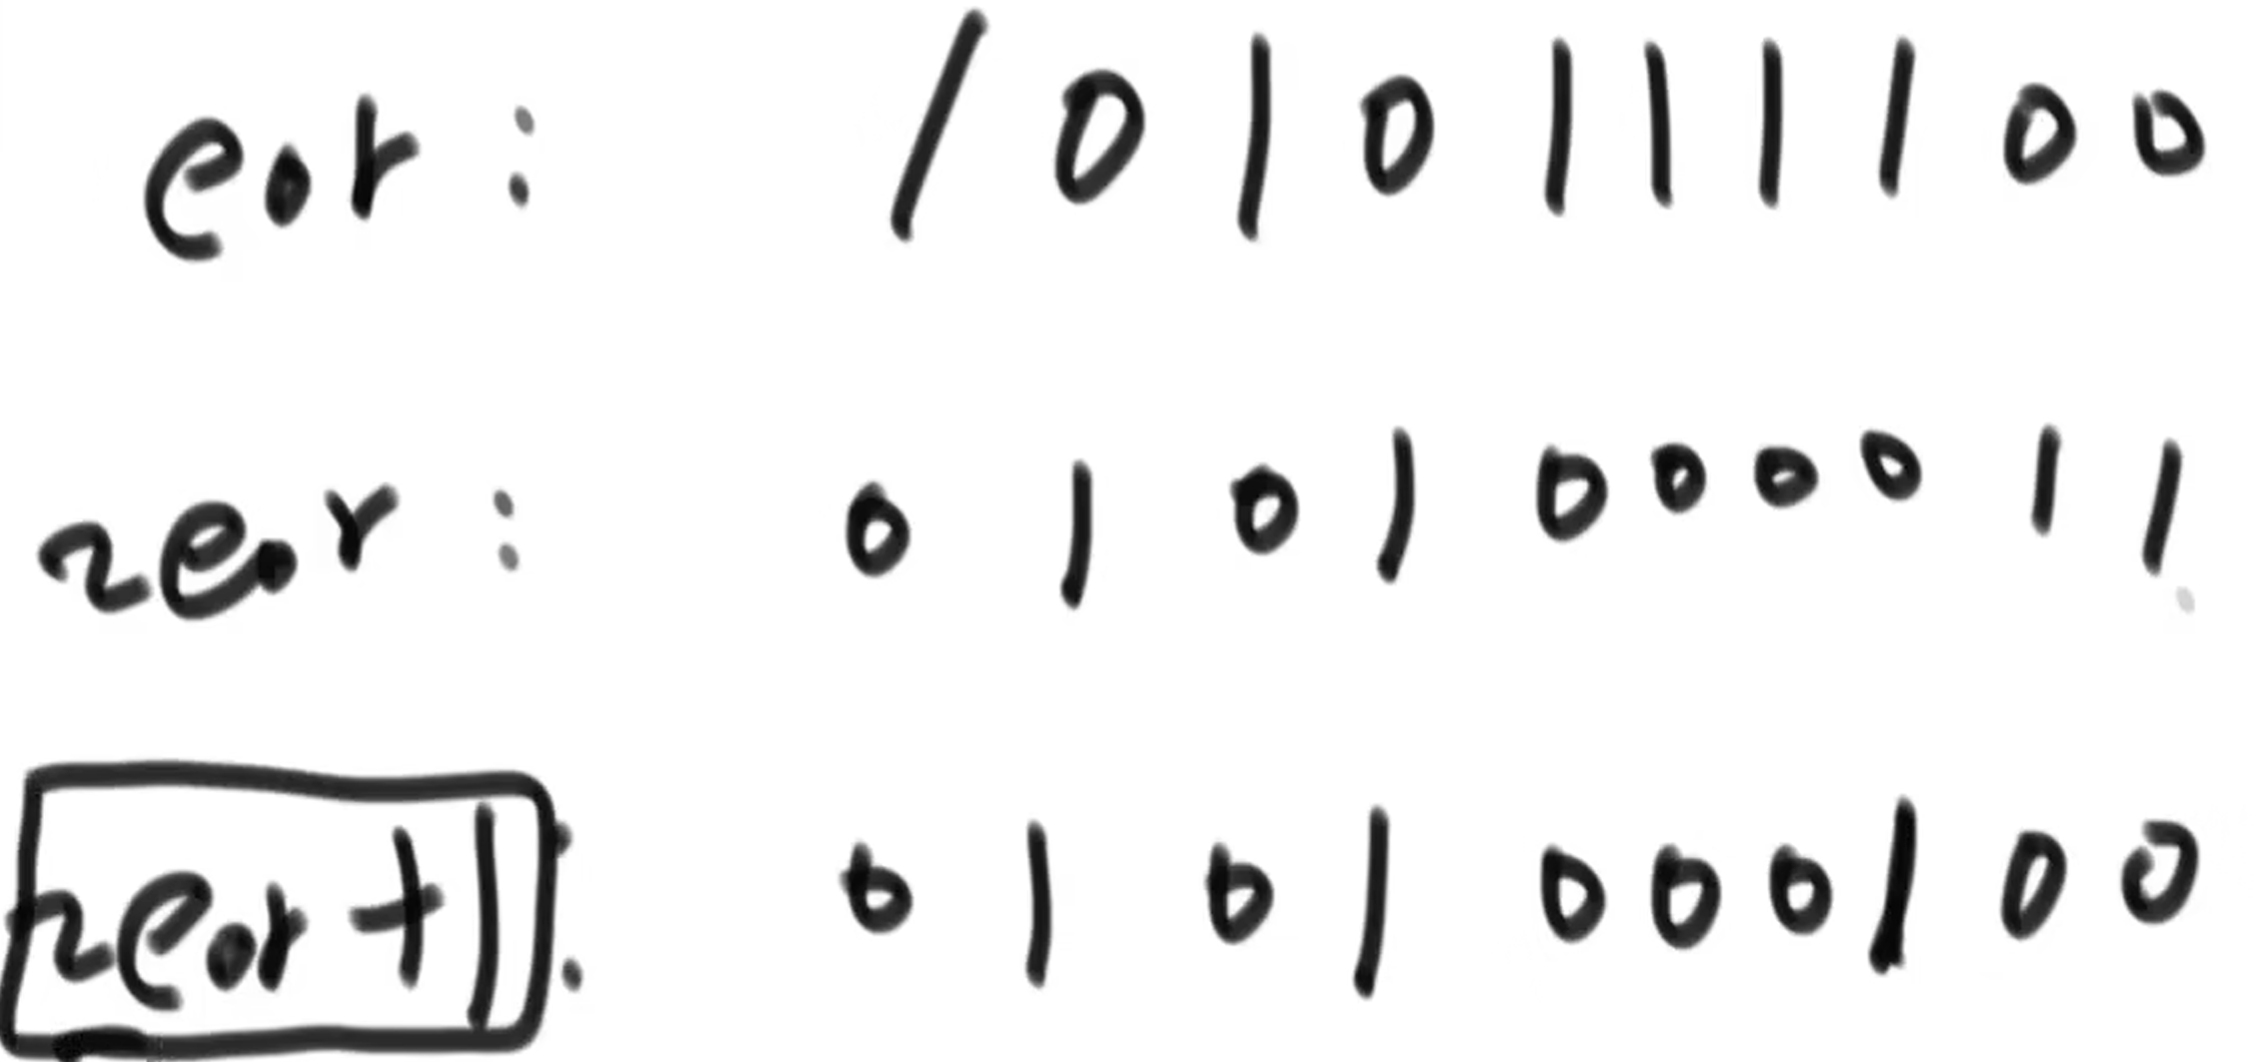 eor : 1010111100
~eor : 0101000011
~eor+1 : 0101000100